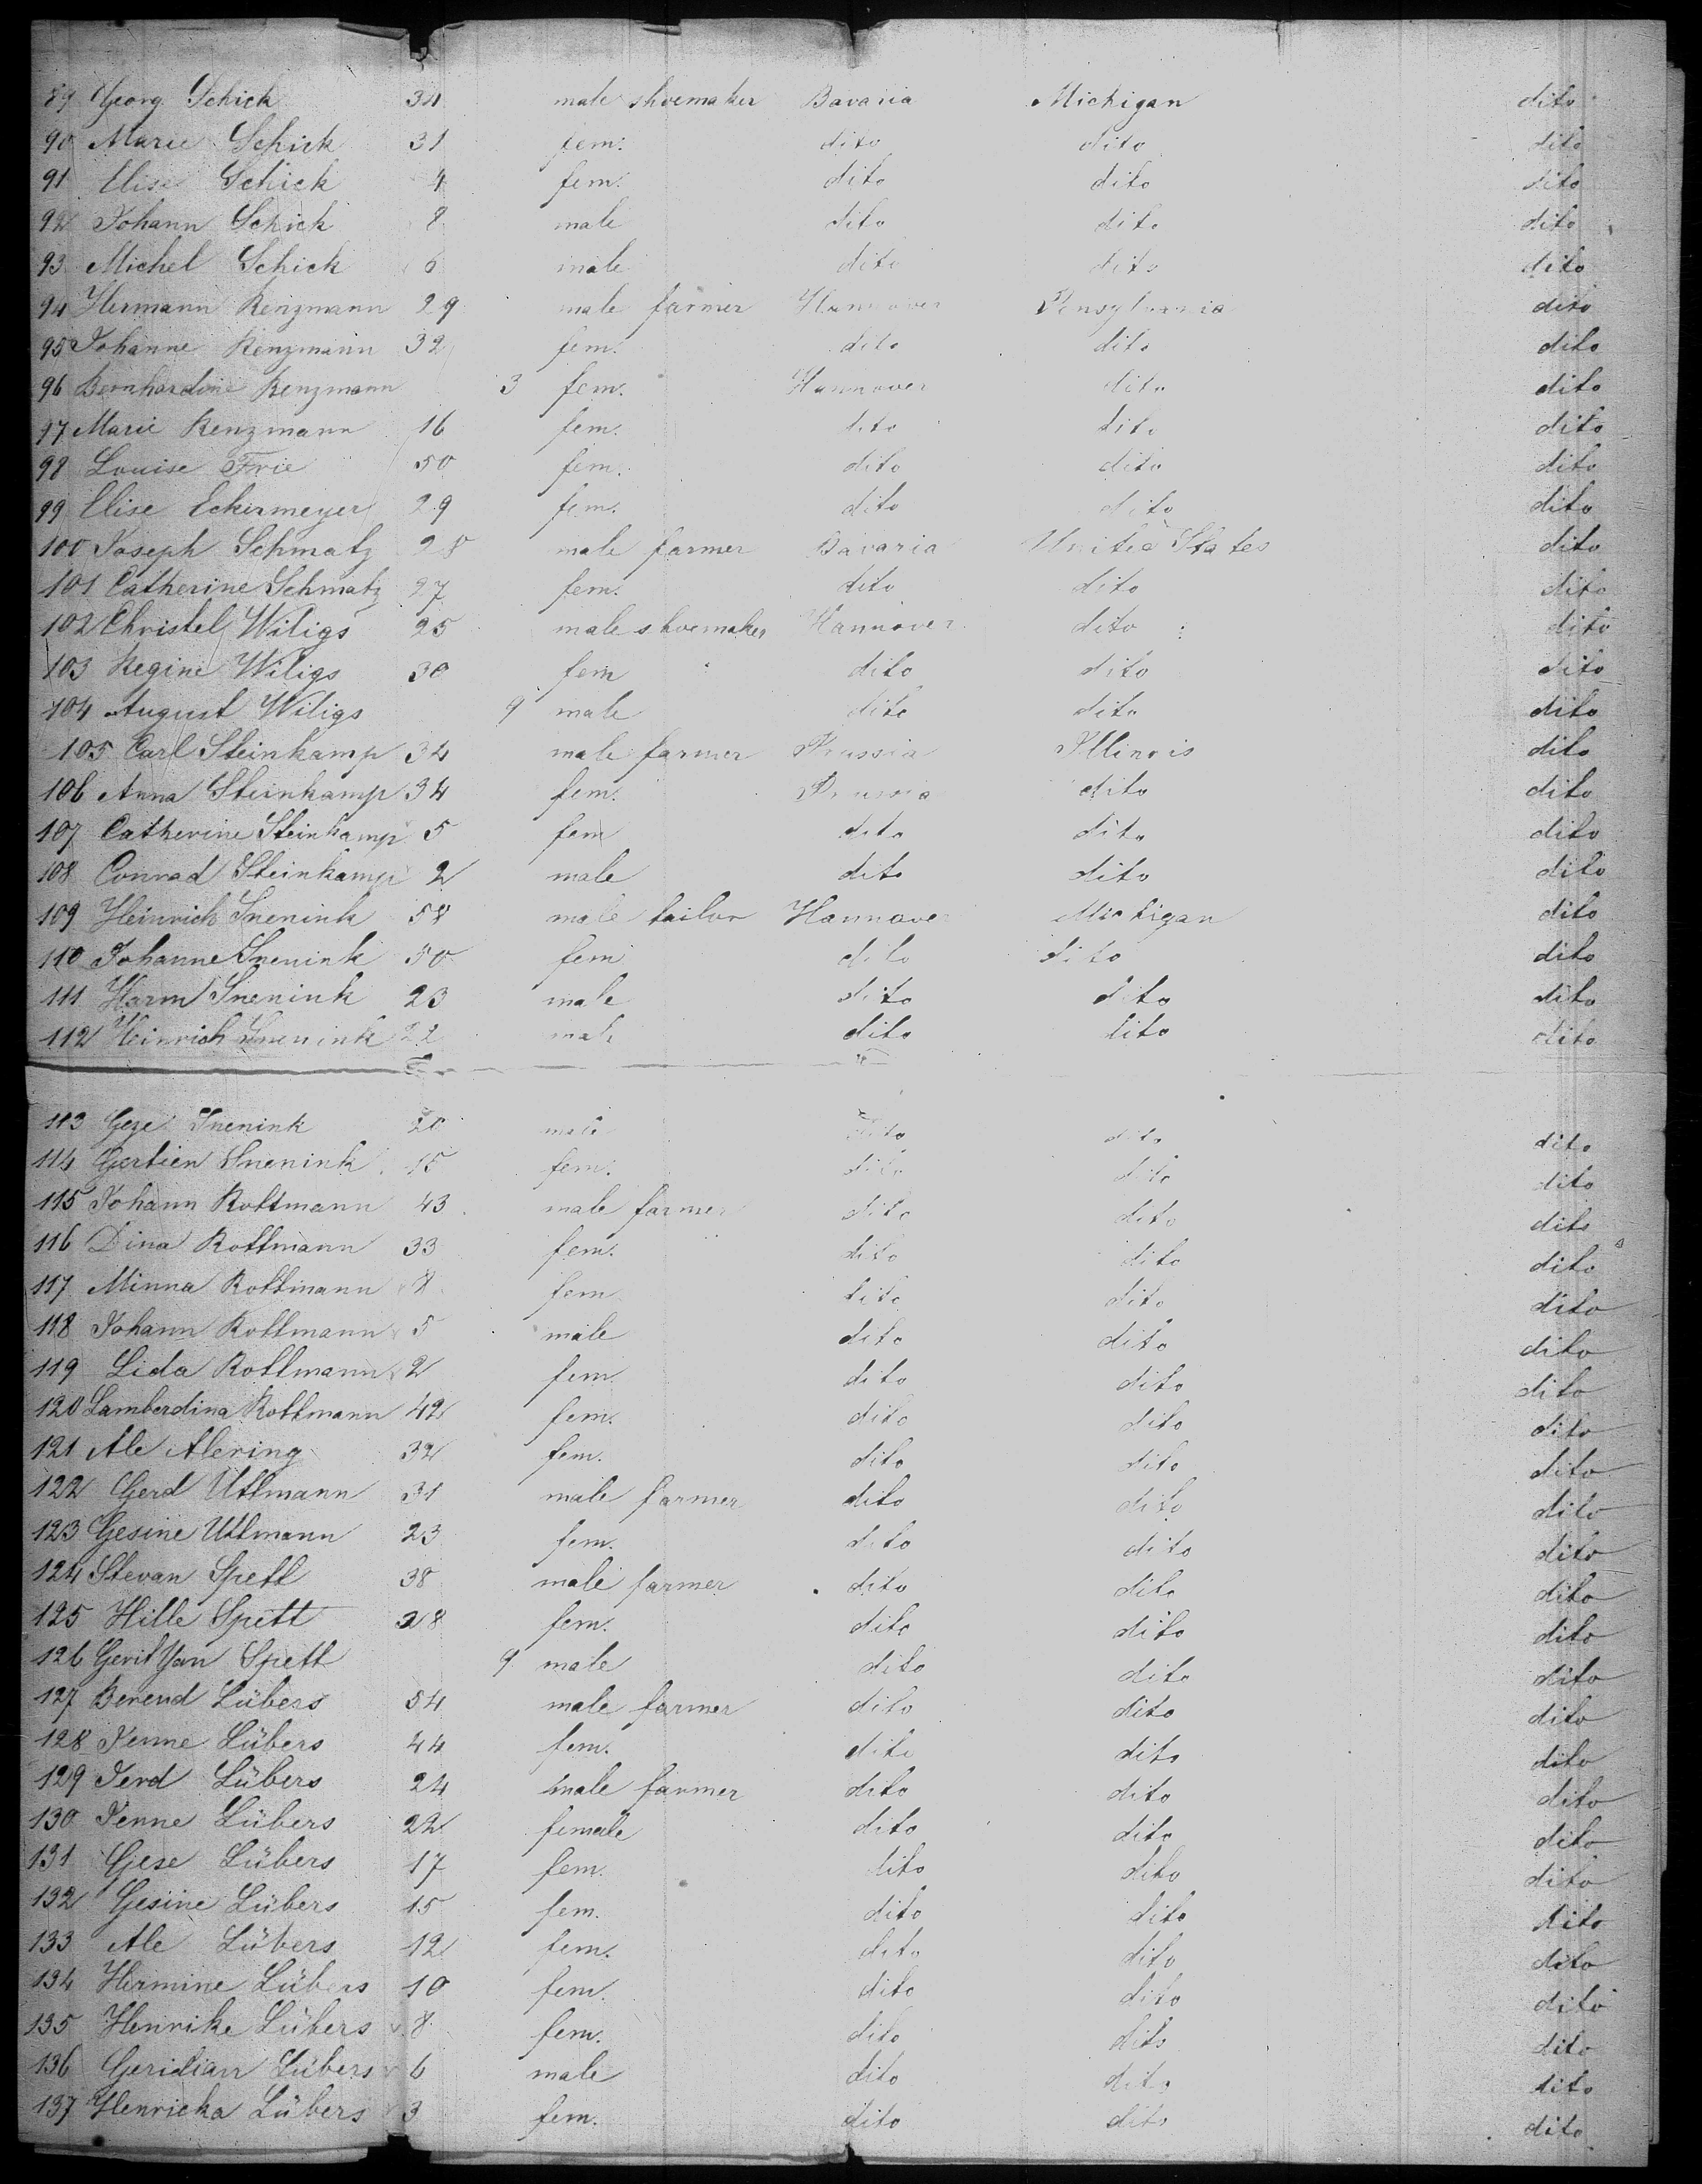 89 Georg Schick 34 male shoemaker Bavaria Michigan dito
90 Marie Schick 31 fem. dito dito dito
91 Elise Schick 4 fem. dito dito dito
92 Johann Schick 8 male dito dito dito
93 Michel Schick 6 male dito dito dito
94 Hermann Renzmann 29 male farmer Hannover Pensylvania dito
95 Johanne Renzmann 32 fem. dito dito dito
96 Bernhardine Renzmann 3 fem. Hannover dito dito
97 Marie Renzmann 16 fem. dito dito dito
98 Louise Frie 50 fem. dito dito dito
99 Elise Eckermeyer 29 fem. dito dito dito
100 Joseph Schmatz 28 male farmer Bavaria United States dito
101 Catherine Schmatz 27 fem. dito dito dito
102 Christel Wiligs 25 male shoemaker Hannover dito dito
103 Regine Wiligs 30 fem dito dito dito
104 August Wiligs 9 male dito dito dito
105 Carl Steinkamp 34 male farmer Prussia Illinois dito
106 Anna Steinkamp 34 fem. Prussia dito dito
107 Catherine Steinkamp 5 fem dito dito dito
108 Conrad Steinkamp 2 male dito dito dito
109 Heinrich Snenink 58 male tailor Hannover Michigan dito
110 Johanne Snenink 50 fem dito dito dito
111 Harm Snenink 23 male dito dito dito
112 Heinrich Snenink 22 male dito dito dito
113 Geze Snenink 20 male dito dito dito
114 Gertien Snenink 15 fem. dito dito dito
115 Johann Rottmann 43 male farmer dito dito dito
116 Dina Rottmann 33 fem. dito dito dito
117 Minna Rottmann 8 fem dito dito dito
118 Johann Rottmann 5 male dito dito dito
119 Lida Rottmann 2 fem. dito dito dito
120 Lamberdina Rottmann 42 fem. dito dito dito
121 Ale Alering 32 fem. dito dito dito
122 Gerd Uttmann 31 male farmer dito dito dito
123 Gesine Uttmann 23 fem. dito dito dito
124 Stevan Spett 38 male farmer dito dito dito
125 Hille Spett 28 fem. dito dito dito
126 Gerit Yan Spett 9 male dito dito dito
127 Berend Lübers 54 male farmer dito dito dito
128 Jenne Lübers 44 fem. dito dito dito
129 Jerd Lübers 24 male farmer dito dito dito
130 Jenne Lübers 22 female dito dito dito
131 Gese Lübers 17 fem. dito dito dito
132 Gesine Lübers 15 fem. dito dito dito
133 Ale Lübers 12 fem. dito dito dito
134 Hermine Lübers 10 fem. dito dito dito
135 Henrike Lübers 8 fem. dito dito dito
136 Geridian Lübers 6 male dito dito dito
137 Henricka Lübers 3 fem. dito dito dito